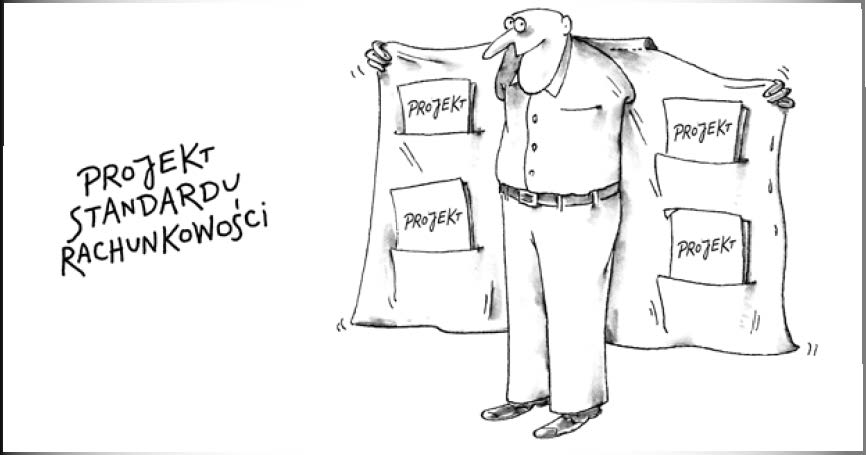 PROJEKT
STANDARDU
RACHUNKOWOŚCI
PROJEKT
PROJEKT
PROJEKT
PROJEKT